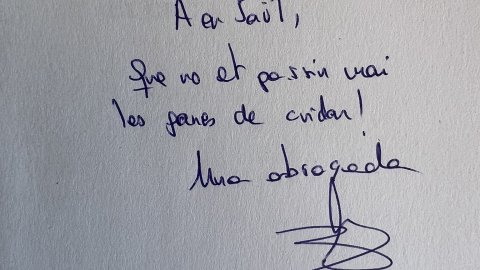 A en Saül,
Que no et passin mai
les ganes de cridar!
Una abraçada